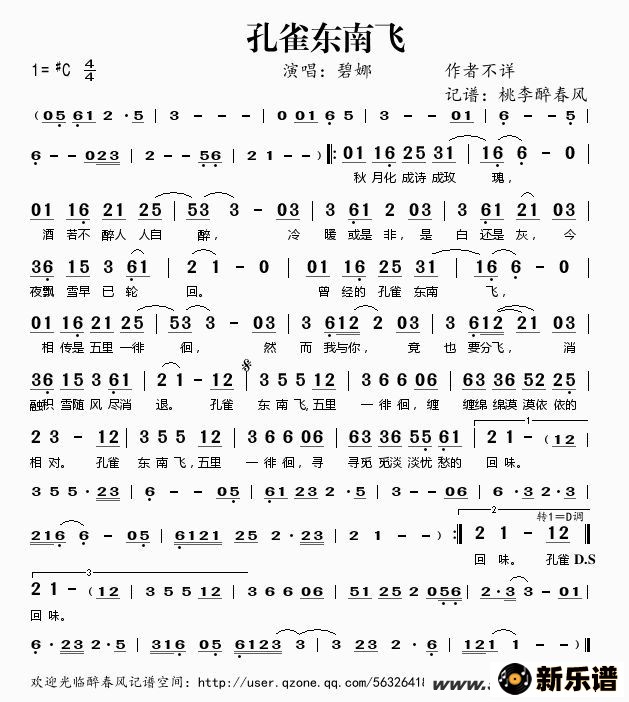 孔雀东南飞
1=♯C 4/4 演唱：碧娜 作者不详
记谱：桃李醉春风
(05 61 2·5 | 3 - - - | 0 01 6 5 | 3 - - 01 | 6 - - 5 |
6 - - 023 | 2 - - 56 | 2 1 - - ) ‖: 01 16 25 31 | 16 6 - 0 |
秋 月化 成诗 成玫 瑰，
01 16 21 25 | 53 3 - 03 | 3 61 2 03 | 3 61 21 03 |
酒 若不 醉人 人自 醉， 冷 暖 或是 非，是 白 还是 灰，今
36 15 3 61 | 2 1 - 0 | 01 16 25 31 | 16 6 - 0 |
夜飘 雪早 已 轮 回。 曾 经的 孔雀 东南 飞，
01 16 21 25 | 53 3 - 03 | 3 612 2 03 | 3 612 21 03 |
相 传是 五里 一徘 徊， 然 而 我与你， 竟 也 要分飞，消
36 15 3 61 | 2 1 - 12 | 3 5 5 12 | 3 6 6 06 | 63 36 52 25 |
融积 雪随 风 尽消 退。 孔雀 东 南 飞，五里 一 徘 徊，缠 缠绵 绵漠 漠依 依的
2 3 - 12 | 3 5 5 12 | 3 6 6 06 | 63 36 55 61 | 1 2 1 - (12 |
相 对。 孔雀 东 南 飞，五里 一 徘 徊，寻 寻觅 觅淡 淡忧 愁的 回 味。
3 5 5·23 | 6 - - 05 | 61 2 2·5 | 3 - - 06 | 6·3 2·3 |
216 6 - 05 | 6121 21 25 2·23 | 2 1 - - ) :‖ 2 转1=D调 2 1 - 12 ‖
回 味。 孔雀 D.S
3 2 1 - (12 | 3 5 5 12 | 3 6 6 06 | 51 25 2 056 | 5 23 3 - 01 |
回 味。
6·23 2·5 | 316 05 6123 | 3 3 2·5 | 6·12 121 1 - ‖
欢迎光临醉春风记谱空间：http://user.qzone.qq.com/56326418
www.
新乐谱